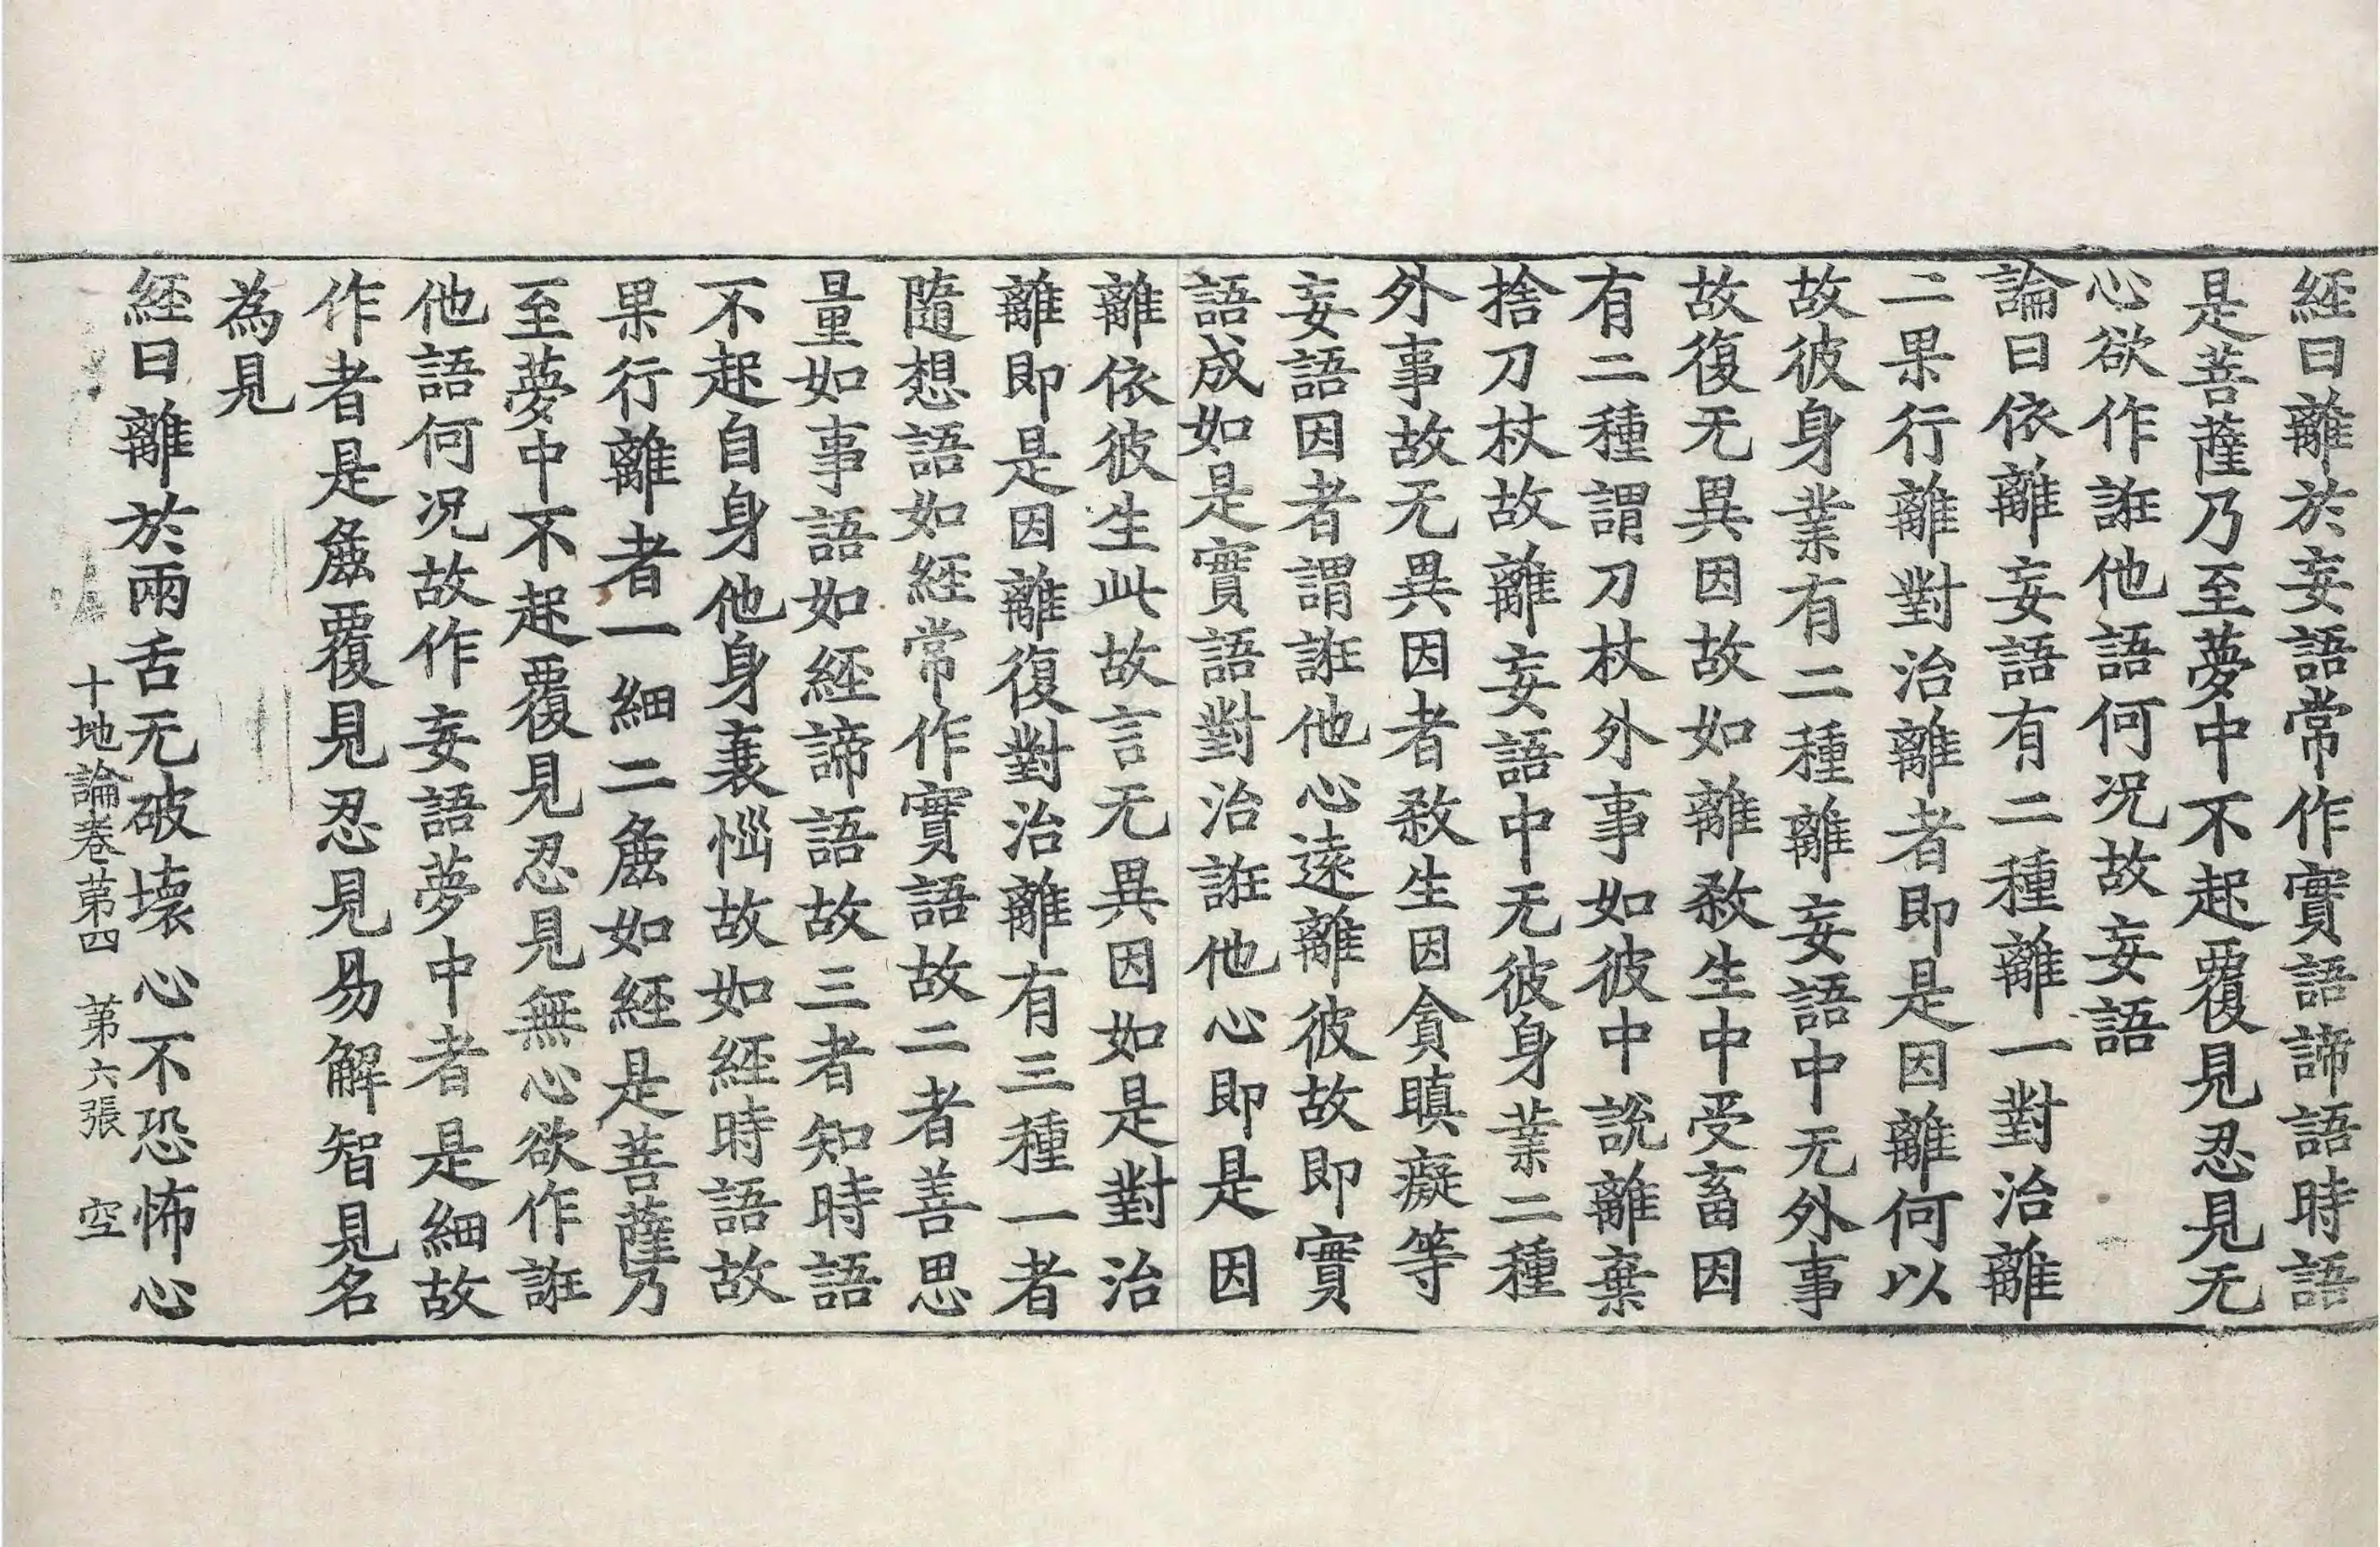 經曰離於妄語常作實語諦語時語
是菩薩乃至夢中不起覆見忍見无
心欲作誑他語何况故妄語
論曰依離妄語有二種離一對治離
二果行離對治離者即是因離何以
故彼身業有二種離妄語中无外事
故復无異因故如離煞生中受畜因
有二種謂刀杖外事如彼中説離棄
捨刀杖故離妄語中无彼身業二種
外事故无異因者煞生因貪瞋癡等
妄語因者謂誑他心遠離彼故即實
語成如是實語對治誑他心即是因
離依彼生此故言无異因如是對治
離即是因離復對治離有三種一者
隨想語如經常作實語故二者善思
量如事語如經諦語故三者知時語
不起自身他身衰惱故如經時語故
果行離者一細二麁如經是菩薩乃
至夢中不起覆見忍見無心欲作誑
他語何况故作妄語夢中者是細故
作者是麁覆見忍見見易解智見名
為見
經曰離於兩舌无破壞心不恐怖心
十地論卷第四　第六張　空